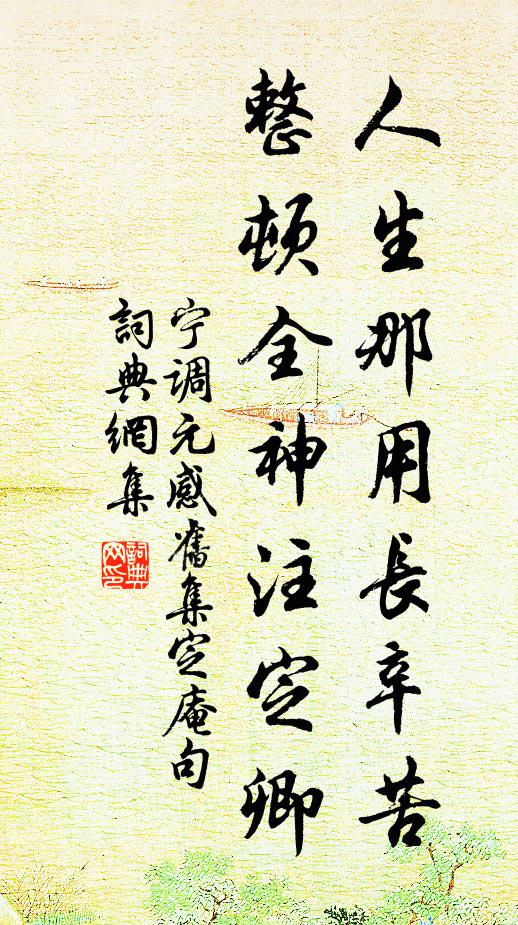 人生那用長辛苦
整頓全神注定卿
宁调元感舊集定庵句
詞典網集
詞典网印